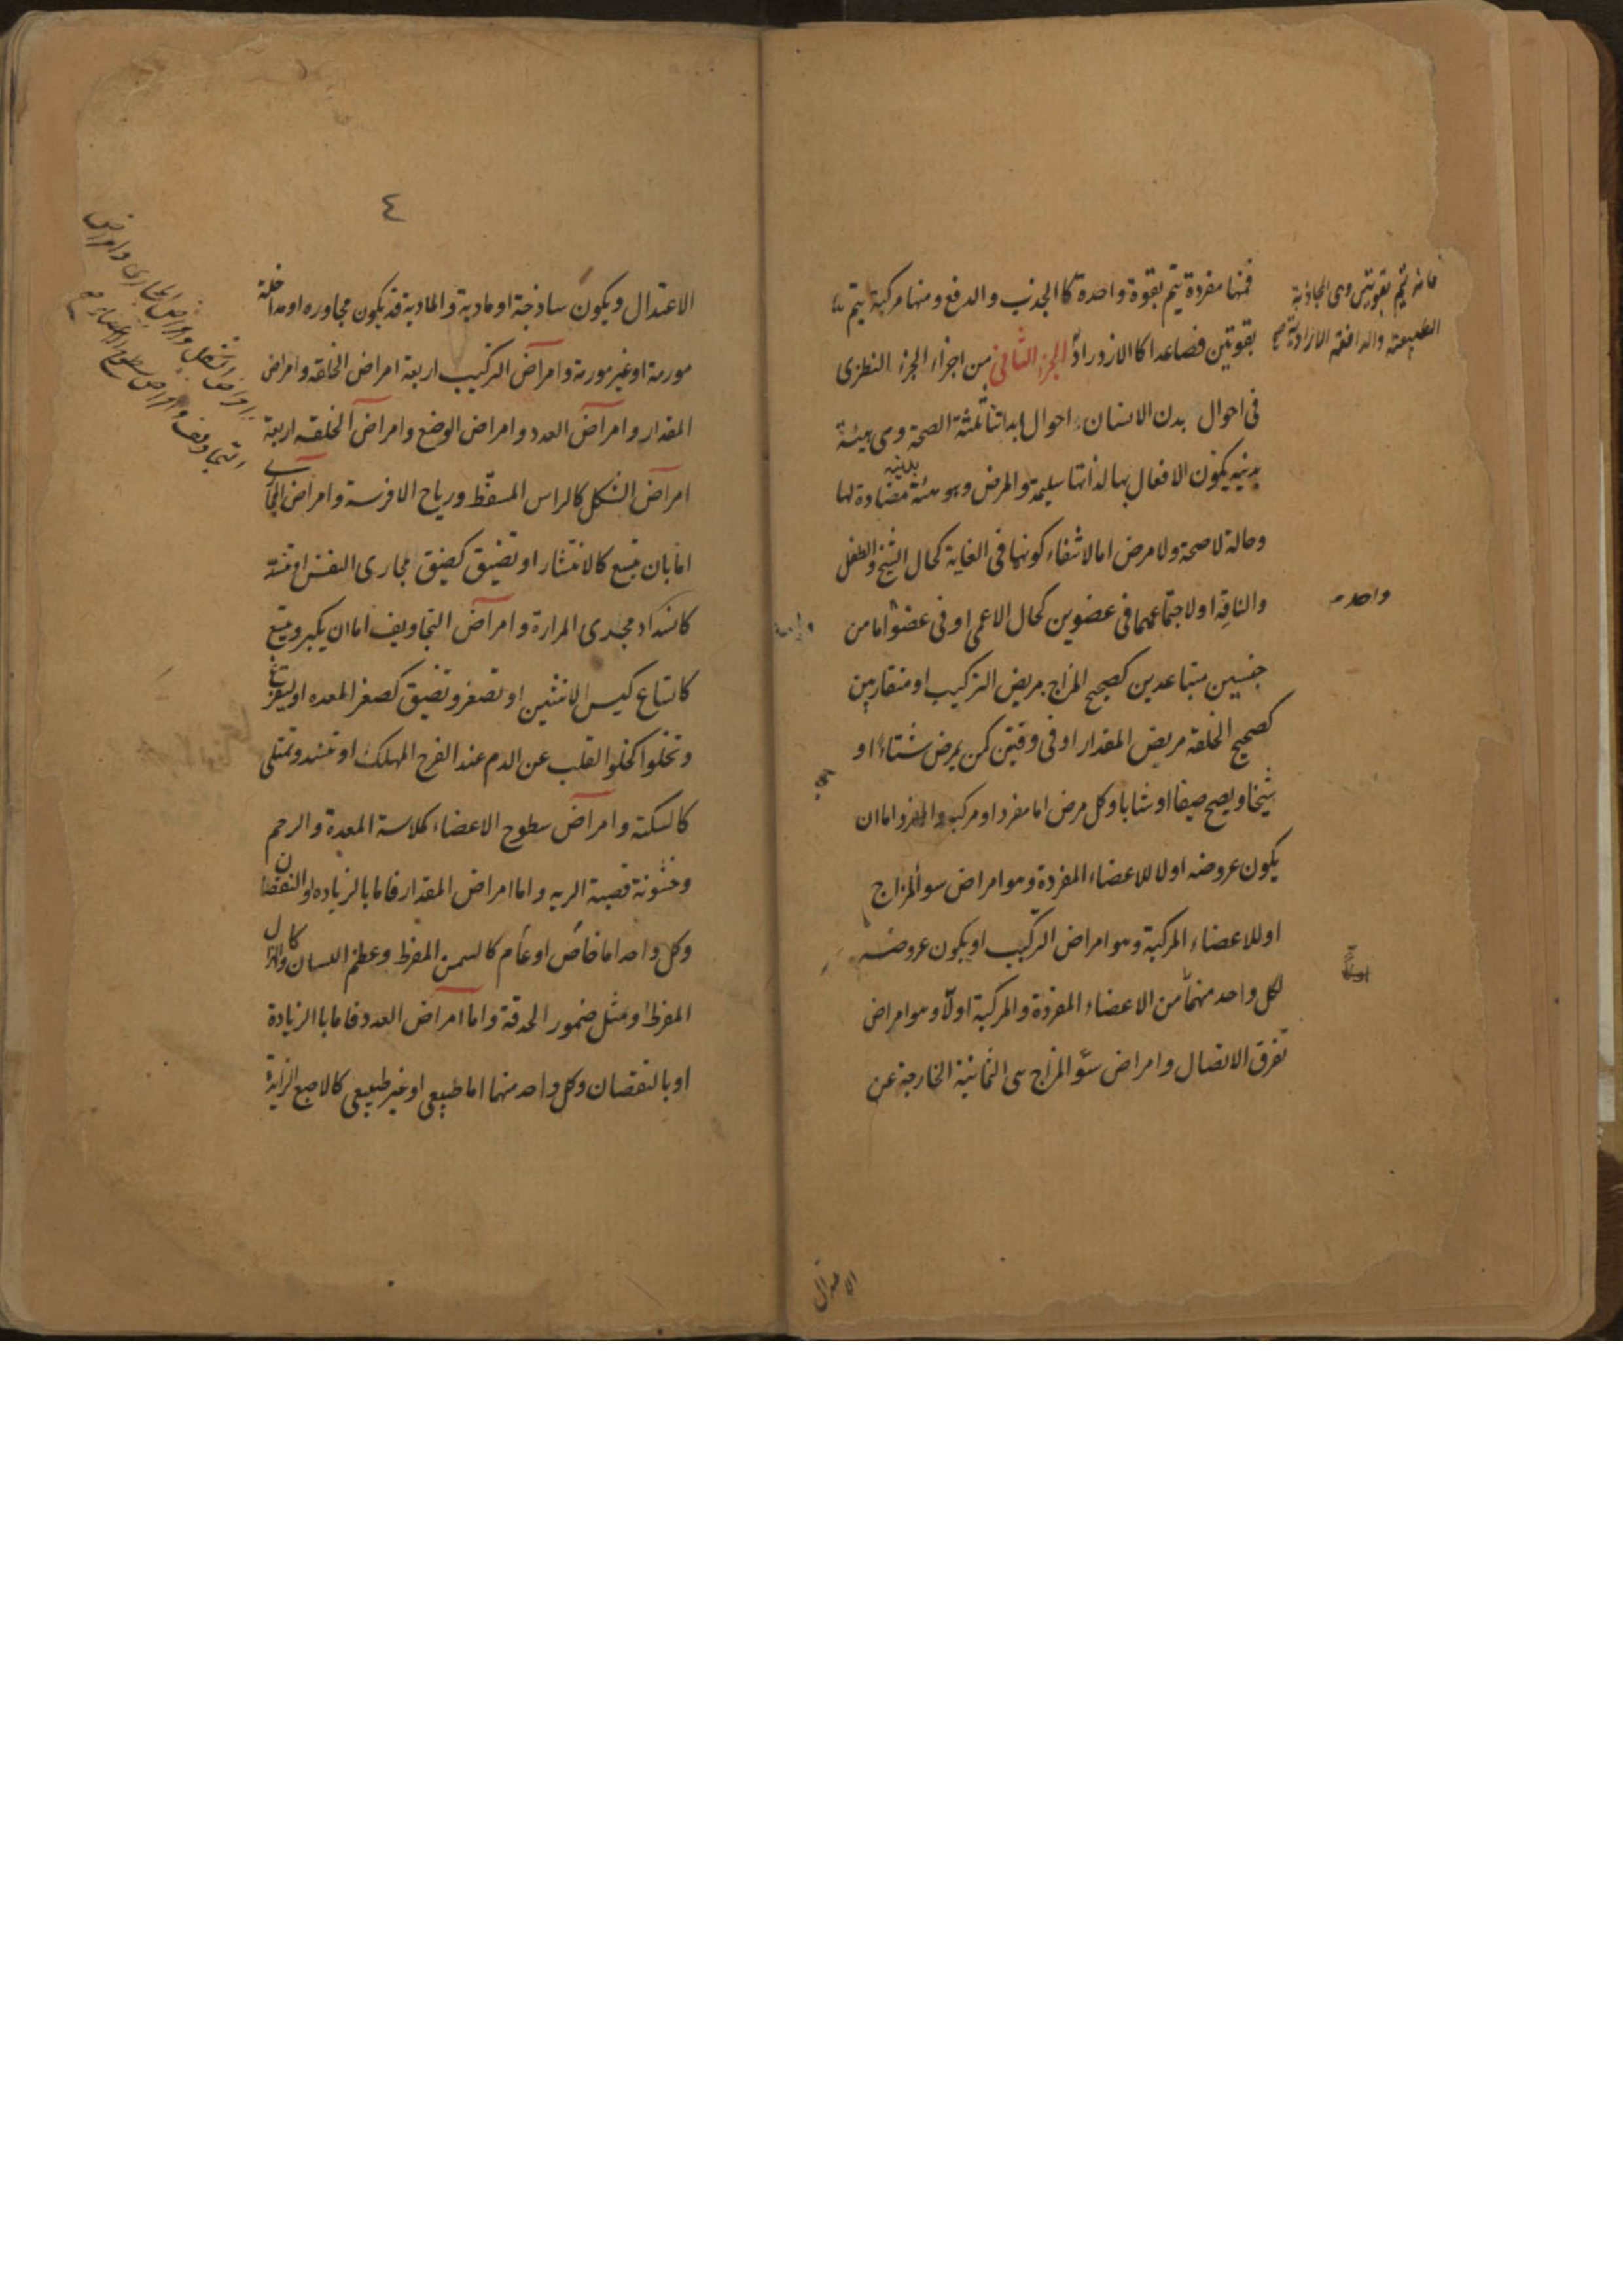 فمنها مفردة يتم بقوة واحدة كالجذب والدفع ومنها مركبة يتم
بقوتين فصاعدا كالازدراد الجزء الثانى من اجزاء الجزء النظرى
فى احوال بدن الانسان احوال ابداننا ثلثة الصحة وهى هيئة
بدنية يكون الافعال بها لذاتها سليمة والمرض وهو هيئة بدنية مضادة لها
وحالة لا صحة ولا مرض اما لانتفاء كونهما فى الغاية كحال الشيخ والطفل
والناقه او لاجتماعهما فى عضوين كحال الاعمى او فى عضو اما من
جنسين متباعدين كصحيح المزاج مريض التركيب او متقاربين
كصحيح الخلقة مريض المقدار او فى وقتين كمن يمرض شتاء او
شيخا ويصح صيفا او شابا وكل مرض اما مفرد او مركب والمفرد اما ان
يكون عروضه اولا للاعضاء المفردة وهو امراض سو المزاج
او للاعضاء المركبة وهو امراض التركيب او يكون عروضه
لكل واحد منهما من الاعضاء المفردة والمركبة اولا وهو امراض
تفرق الاتصال وامراض سوء المزاج هى الثمانية الخارجة عن
فانه يتم بقوتين وهى الجاذبة
الطبيعية والدافعة الارادية صح
واحد
الاعتدال
٤
الاعتدال ويكون ساذجة او مادية والمادية قد يكون مجاوره او مداخلة
مورمة او غير مورمة وامراض التركيب اربعة امراض الخلقة وامراض
المقدار وامراض العدد وامراض الوضع وامراض الخلقة اربعة
امراض الشكل كالراس المسقط ورياح الافرسة وامراض المجارى
اما بان يتسع كالانتشار او تضيق كضيق مجارى النفس او تنسد
كانسداد مجرى المرارة وامراض التجاويف اما ان يكبر ويتسع
كاتساع كيس الانثيين او تصغر وتضيق كصغر المعده او يستفرغ
وتخلو كخلو القلب عن الدم عند الفرح المهلك او تنسد وتمتلى
كالسكتة وامراض سطوح الاعضاء كملاسة المعدة والرحم
وخشونة قصبة الريه واما امراض المقدار فاما بالزياده او النقصان
وكل واحد اما خاص او عام كالسمن المفرط وعظم اللسان وكالهزال
المفرط او مثل ضمور الحدقة واما امراض العدد فاما بالزيادة
او بالنقصان وكل واحد منهما اما طبيعى او غير طبيعى كالاصبع الزايدة
امراض الشكل وامراض المجارى وامراض
التجاويف وامراض سطوح الاعضاء